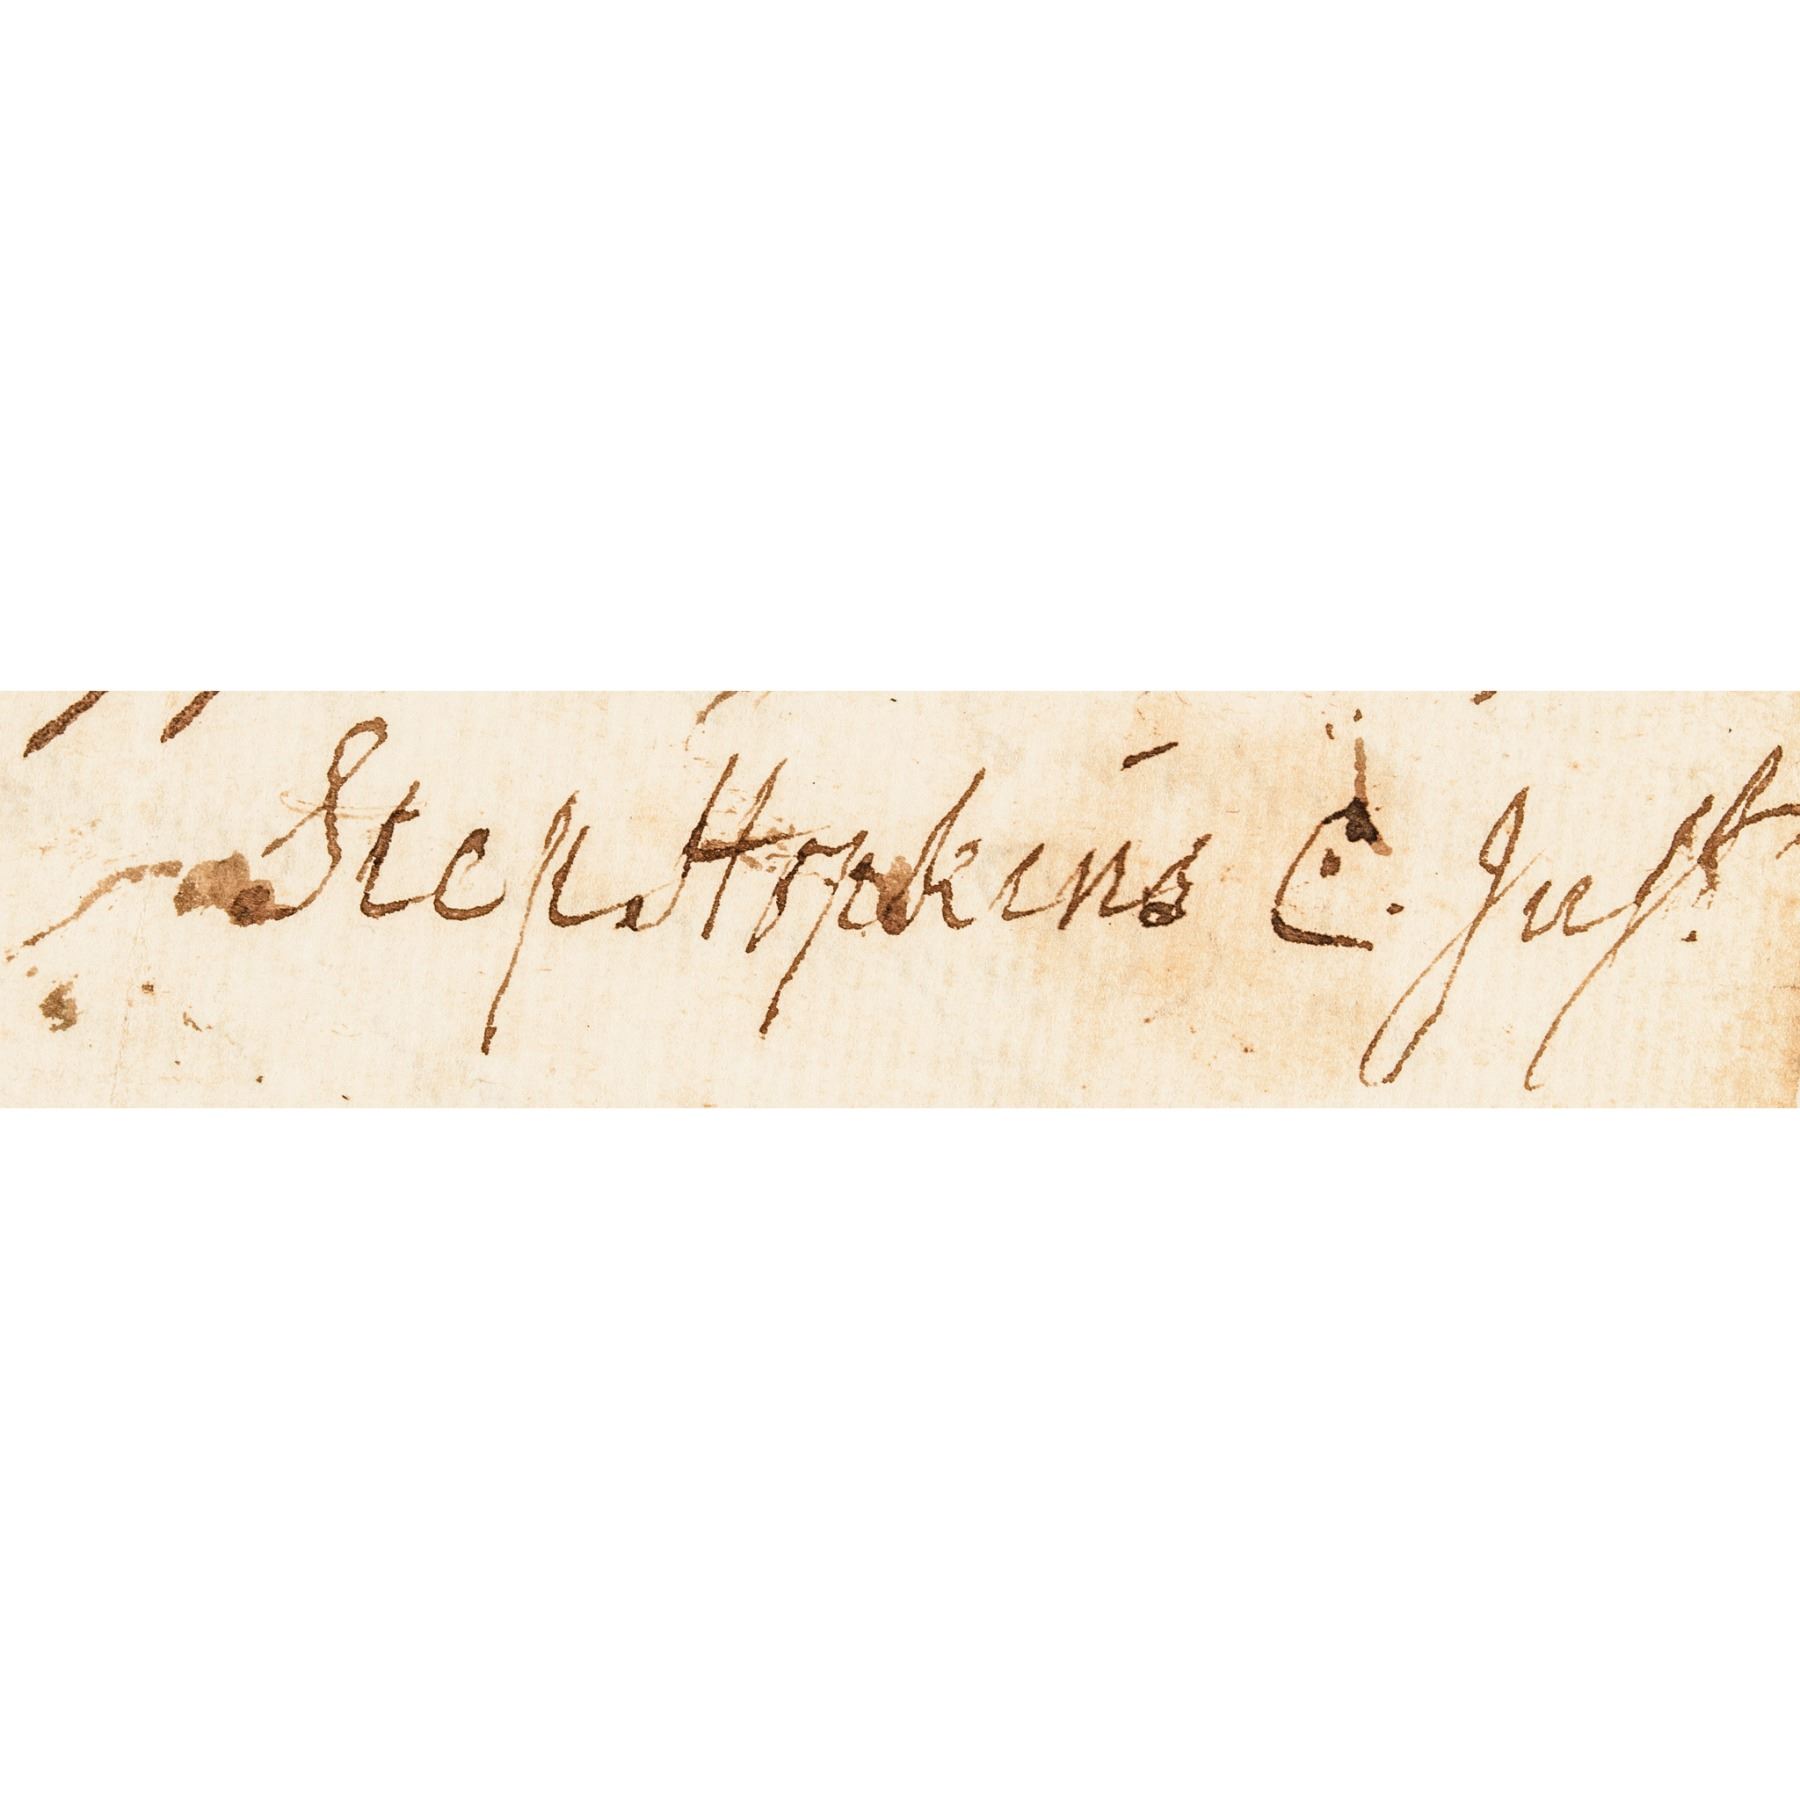 Step Hopkins C. Just.